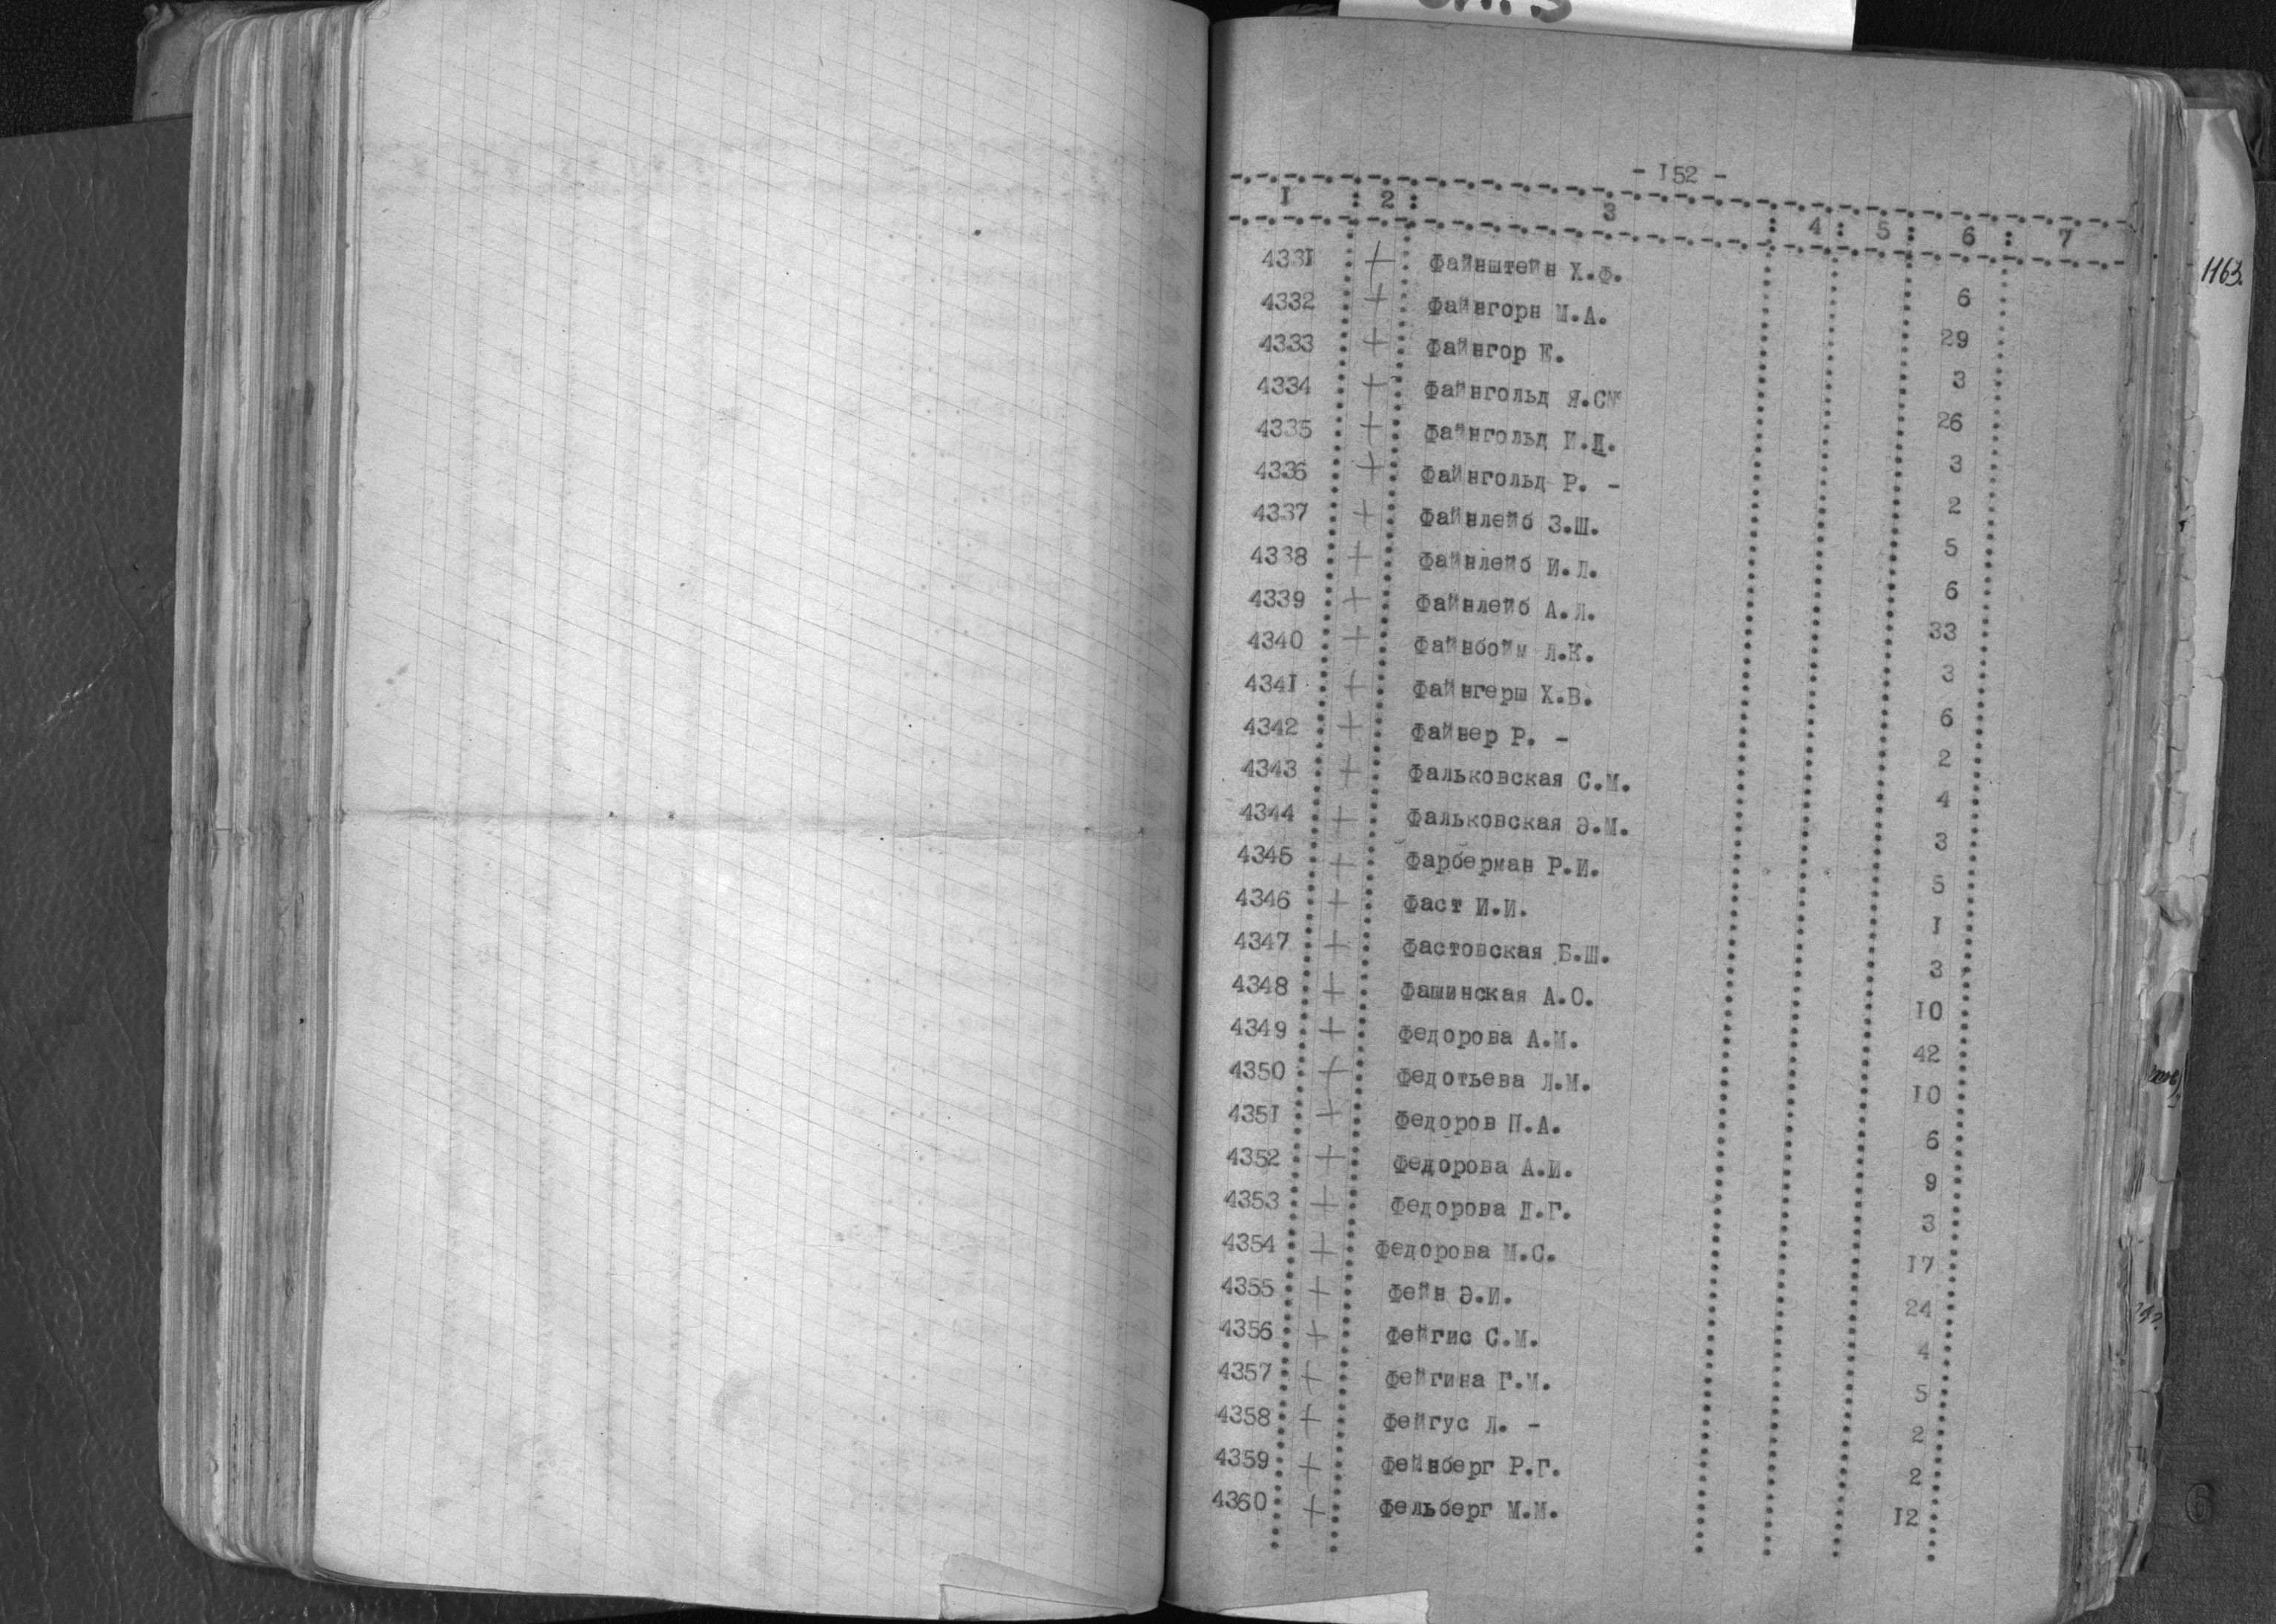 - I52 -
I : 2 : 3 : 4 : 5 : 6 : 7
1163.
433I + Файнштейн Х.Ф. 6
4332 + Файнгорн М.А. 29
4333 + Файнгор Е. 3
4334 + Файнгольд Я.С 26
4335 + Файнгольд 3
4336 + Файнгольд Р. - 2
4337 + Файнлейб З.Ш. 5
4338 + Файнлейб И.Л. 6
4339 + Файнлейб А.Л. 33
4340 + Файнбойм Л.К. 3
434I + Файнгерш Х.В. 6
4342 + Файнер Р. - 2
4343 + Фальковская С.М. 4
4344 + Фальковская Э.М. 3
4345 + Фарберман Р.И. 5
4346 + Фаст И.И. I
4347 + Фастовская Б.Ш. 3
4348 + Фашинская А.О. I0
4349 + Федорова А.М. 42
4350 + Федотьева Л.М. I0
435I + Федоров П.А. 6
4352 + Федорова А.И. 9
4353 + Федорова Л.Г. 3
4354 + Федорова М.С. I7
4355 + Фейн Э.И. 24
4356 + Фейгис С.М. 4
4357 + Фейгина Г.М. 5
4358 + Фейгус Л. - 2
4359 + Фейнберг Р.Г. 2
4360 + Фельберг М.М. I2